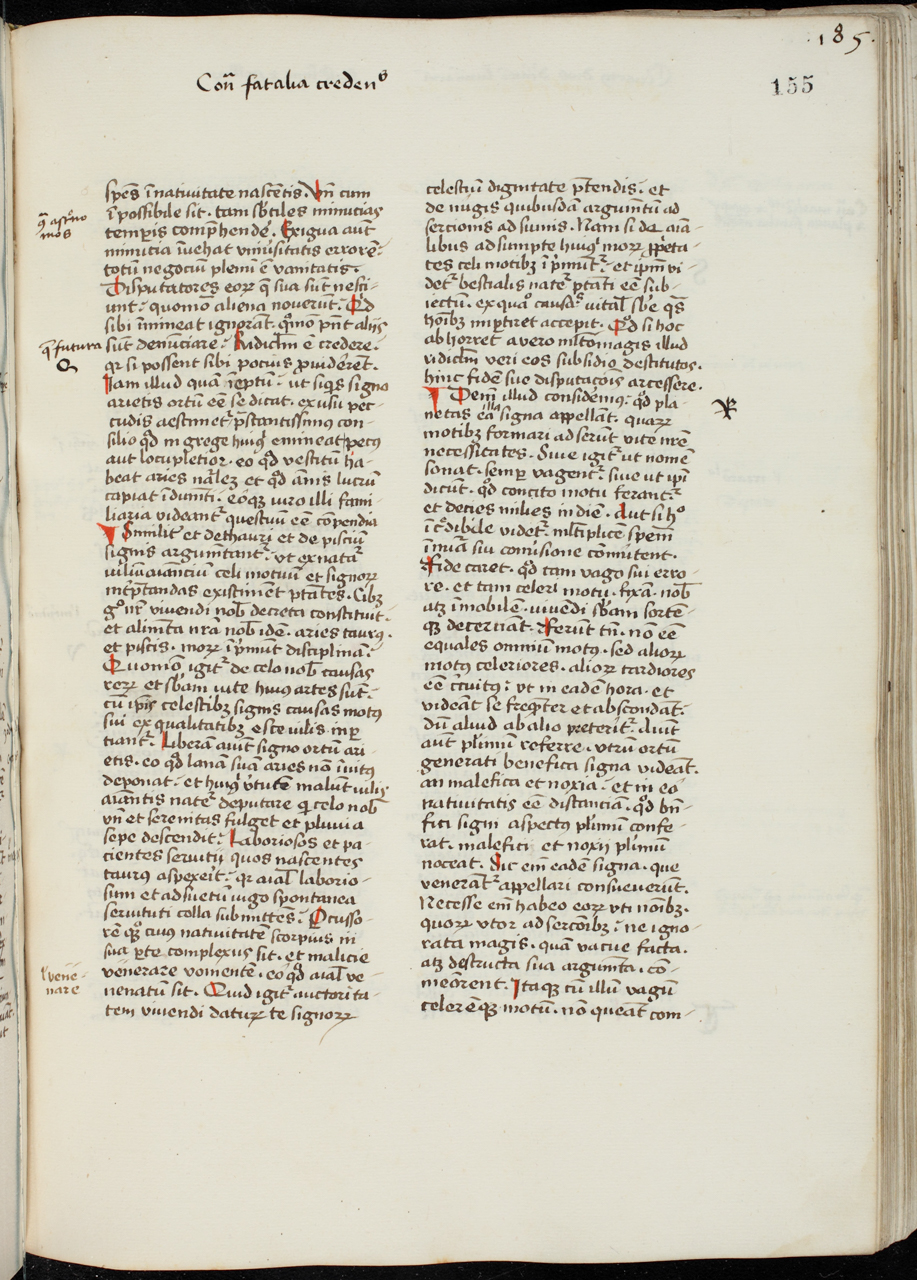 ·185·
155
Con̄ fatalia creden
spēs ī natiuitate nascētis. Vn̄ cum
īpossibile sit. tam sb̄tiles minutias
temporis comprehendē. Exigua aut̄
minutia īuehat vniūsitatis errorē.
totū negociū plenū ē vanitatis.
Disputatores eorꝝ q̄ sua sūt nesci-
unt. quomō aliena nouerūt. Qd̄
sibi īmineat ignorāt. qūo pn̄t alijs
q̄ futura
sūt denūciare. Ridiclm̄ ē credere.
qꝛ si possent sibi pocius prouiderēt.
Iam illud quā īeptū. ut siqͥs signo
arietis ortū eē se dicat. ex usu pec-
cudis aestimet᷑ p̄stantissimus con-
silio qd̄ in grege huiꝰ emineat pecus
aut locupletior. eo qd̄ vestitū ha-
beat aries nāleʒ et qd̄ ānis lucrū
capiat īdumti. eoqꝫ uiro illi fami-
liaria videant᷑ questuū eē cōpendia
Similiť et de thauri et de pisciū
signis argumētant᷑. vt ex nata᷑
viliū aiānciū celi motuū et signorꝝ
int̄p̄tandas existiment ptātes. Cibꝫ
gͦ nr̄ vivendi nob̄ decreta constituit.
et alimēta nrā nob̄ idē. aries taurꝰ.
et piscis. morꝝ īprimūt disciplinā.
Quomō igit᷑ de celo nob̄ causas
rerꝝ et sb̄am vite huiꝰ artes sūt.
cū ipīs celestibꝫ signis causas motꝰ
sui ex qualitatibꝫ esce uilis inꝑ
tiant᷑. Liberā aiūt signo ortū ari-
etis. eo qd̄ lanā suā aries nō īuitꝰ
deponat. et huiꝰ v̄tutē malūt uilis
aiāntis nate᷑ deputare qͣ celo nob̄
vn̄ et serenitas fulget et pluuia
sepe descendit. Laboriosos et pa-
cientes seruitij quos nascentes
taurꝰ aspexerit. qꝛ aial̄ laborio-
sum et adsuetū iugo spontanea
seruituti colla submittens. Pcusso-
rē qͦꝫ cuiꝰ natiuitatē scorpius in
sua parte complexus sit. et malicie
l' vene-
nare
venerare vomentē. eo qd̄ aial̄ ve-
nenatū sit. Quid igit᷑ auctorita-
tem viuendi datur te signorꝝ
celestiū dignitate p̄tendis. et
de nugis quibusdā argumtū ad-
sercionis adsumis. Nam si de aiā-
libus adsumpte huiꝰ morꝝ prieta-
tes celi motibꝫ īprimūt᷑. et ipm̄ vi-
det᷑ bestialis nate᷑ ptāti eē sub-
iectū. ex quoꝰ causas vital̄ sb̄e qͣs
hoībꝫ imꝑtiret accepit. Qd̄ si hoc
abhorret a vero ml̄tomagis illud
ridiclm̄ veri eos subsidio destitutos.
hinc fidē sue disputacōis arcessere.
Item illud considemꝰ. qd̄ pla-
netas eā illa signa appellāt. quarꝝ
motibꝫ formari adserūt vite nrē
necessitates. Siue igit᷑ ut nomē
sonat. semꝑ vagent᷑. siue ut ipī
dicūt. qd̄ concito motu ferant᷑
et decies milies in diē. Aut si hͦ
īcͬdibile videt᷑. ml̄tiplicē spem
īmūā siu comisione cōmutent.
Fide caret. qd̄ tam vago sui erro-
re. et tam celeri motu. fixā nob̄
atꝫ īmobilē. viuēdi sb̄am sortē-
qꝫ decernāt. Ferūt tn̄. nō eē
equales omniū motus. sed aliorꝝ
motus celeriores. aliorꝝ tardiores
eē cͬcuitꝰ. vt in eadē hora. et
videāt se freqn̄ter et abscondāt.
dū aliud ab alio preterit᷑. Aiūt
aut̄ plimū referre. vtrū ortū
generati benefica signa videāt.
an malefica et noxia. et in eo
natiuitatis eē distanciā. qd̄ bn̄-
fici signi aspectus plimū confe-
rat. malefici et noxij plimū
noceat. Sic em̄ eadē signa. que
venerāt᷑ appellari consueuerūt.
Necesse em̄ habeo eorꝝ vti noībꝫ.
quorꝝ vtor adsercōibꝫ. ne igno-
rata magis. quā vacue facta.
atꝫ destructa sua argumta. cō-
meōrent. Itaqꝫ cū illū vagū
celerēqꝫ motū. nō queāt com-